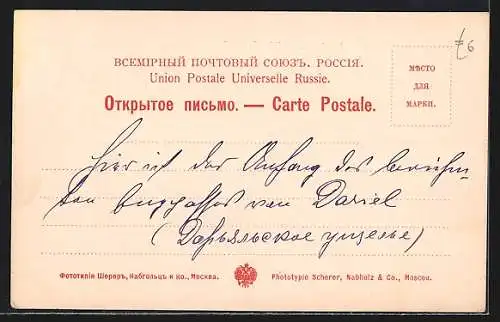 ВСЕМІРНЫЙ ПОЧТОВЫЙ СОЮЗЪ. РОССІЯ.
Union Postale Universelle Russie.
Открытое письмо. — Carte Postale.
МѢСТО
ДЛЯ
МАРКИ.
6
Hier ist der Anfang des berühm-
ten Engpasses von Dariel
(Дарьяльское ущелье)
Фототипія Шереръ, Набгольцъ и ко., Москва.
Phototypie Scherer, Nabholz & Co., Moscou.